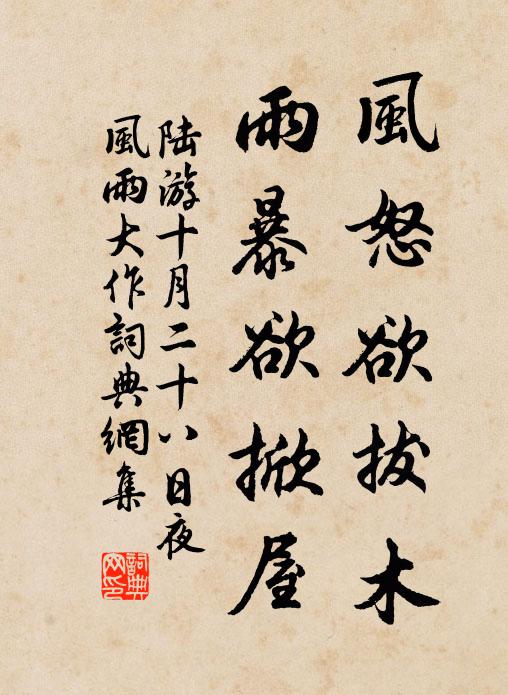 風怒欲拔木
雨暴欲掀屋
陆游十月二十八日夜
風雨大作詞典網集
詞典
网印